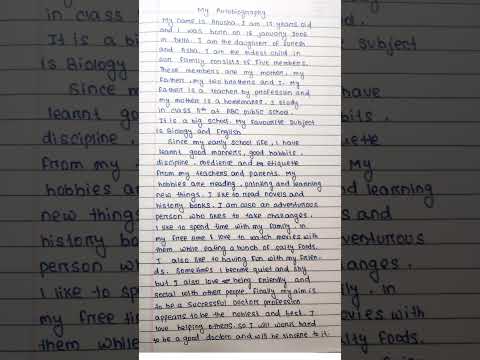 My Autobiography
My name is Anusha. I am 15 years old
and I was born on 16 January 2006
in Delhi. I am the daughter of Suresh
and Asha. I am the eldest child in
our family consists of five members.
These members are my mother, my
father, my two brothers and I. My
father is a teacher by profession and
my mother is a homemaker. I study
in class 8th at ABC public school.
It is a big school. My favourite subject
is Biology and English
Since my early school life, I have
learnt good manners, good habbits,
discipline, and etiquette
from my teachers and parents. My
hobbies are reading, painting and learning
new things. I like to read novels and
history books. I am also an adventurous
person who likes to take challages.
I like to spend time with my family. In
my free time I love to watch movies with
them while eating a bunch of salty foods.
I also like to having fun with my frien-
ds. Sometimes I become quiet and shy
but I also love being friendly and
social with other people. Finally my aim is
to be a successful Doctors profession
appears to be the noblest and best. I
love helping others. so I will work hard
to be a good doctor and will be sincere to it.